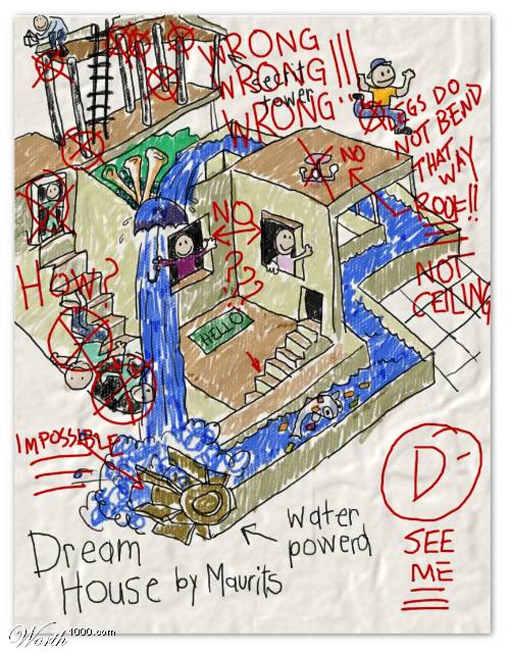 WRONG !!!
WRONG
tower
WRONG
LEGS DO
NOT BEND
THAT
WAY
NO
ROOF!!
NOT
CEILING
NO
HOW?
??
HELLO
IMPOSSIBLE
D-
SEE
ME
water
powerd
Dream
House by Maurits
Worth1000.com